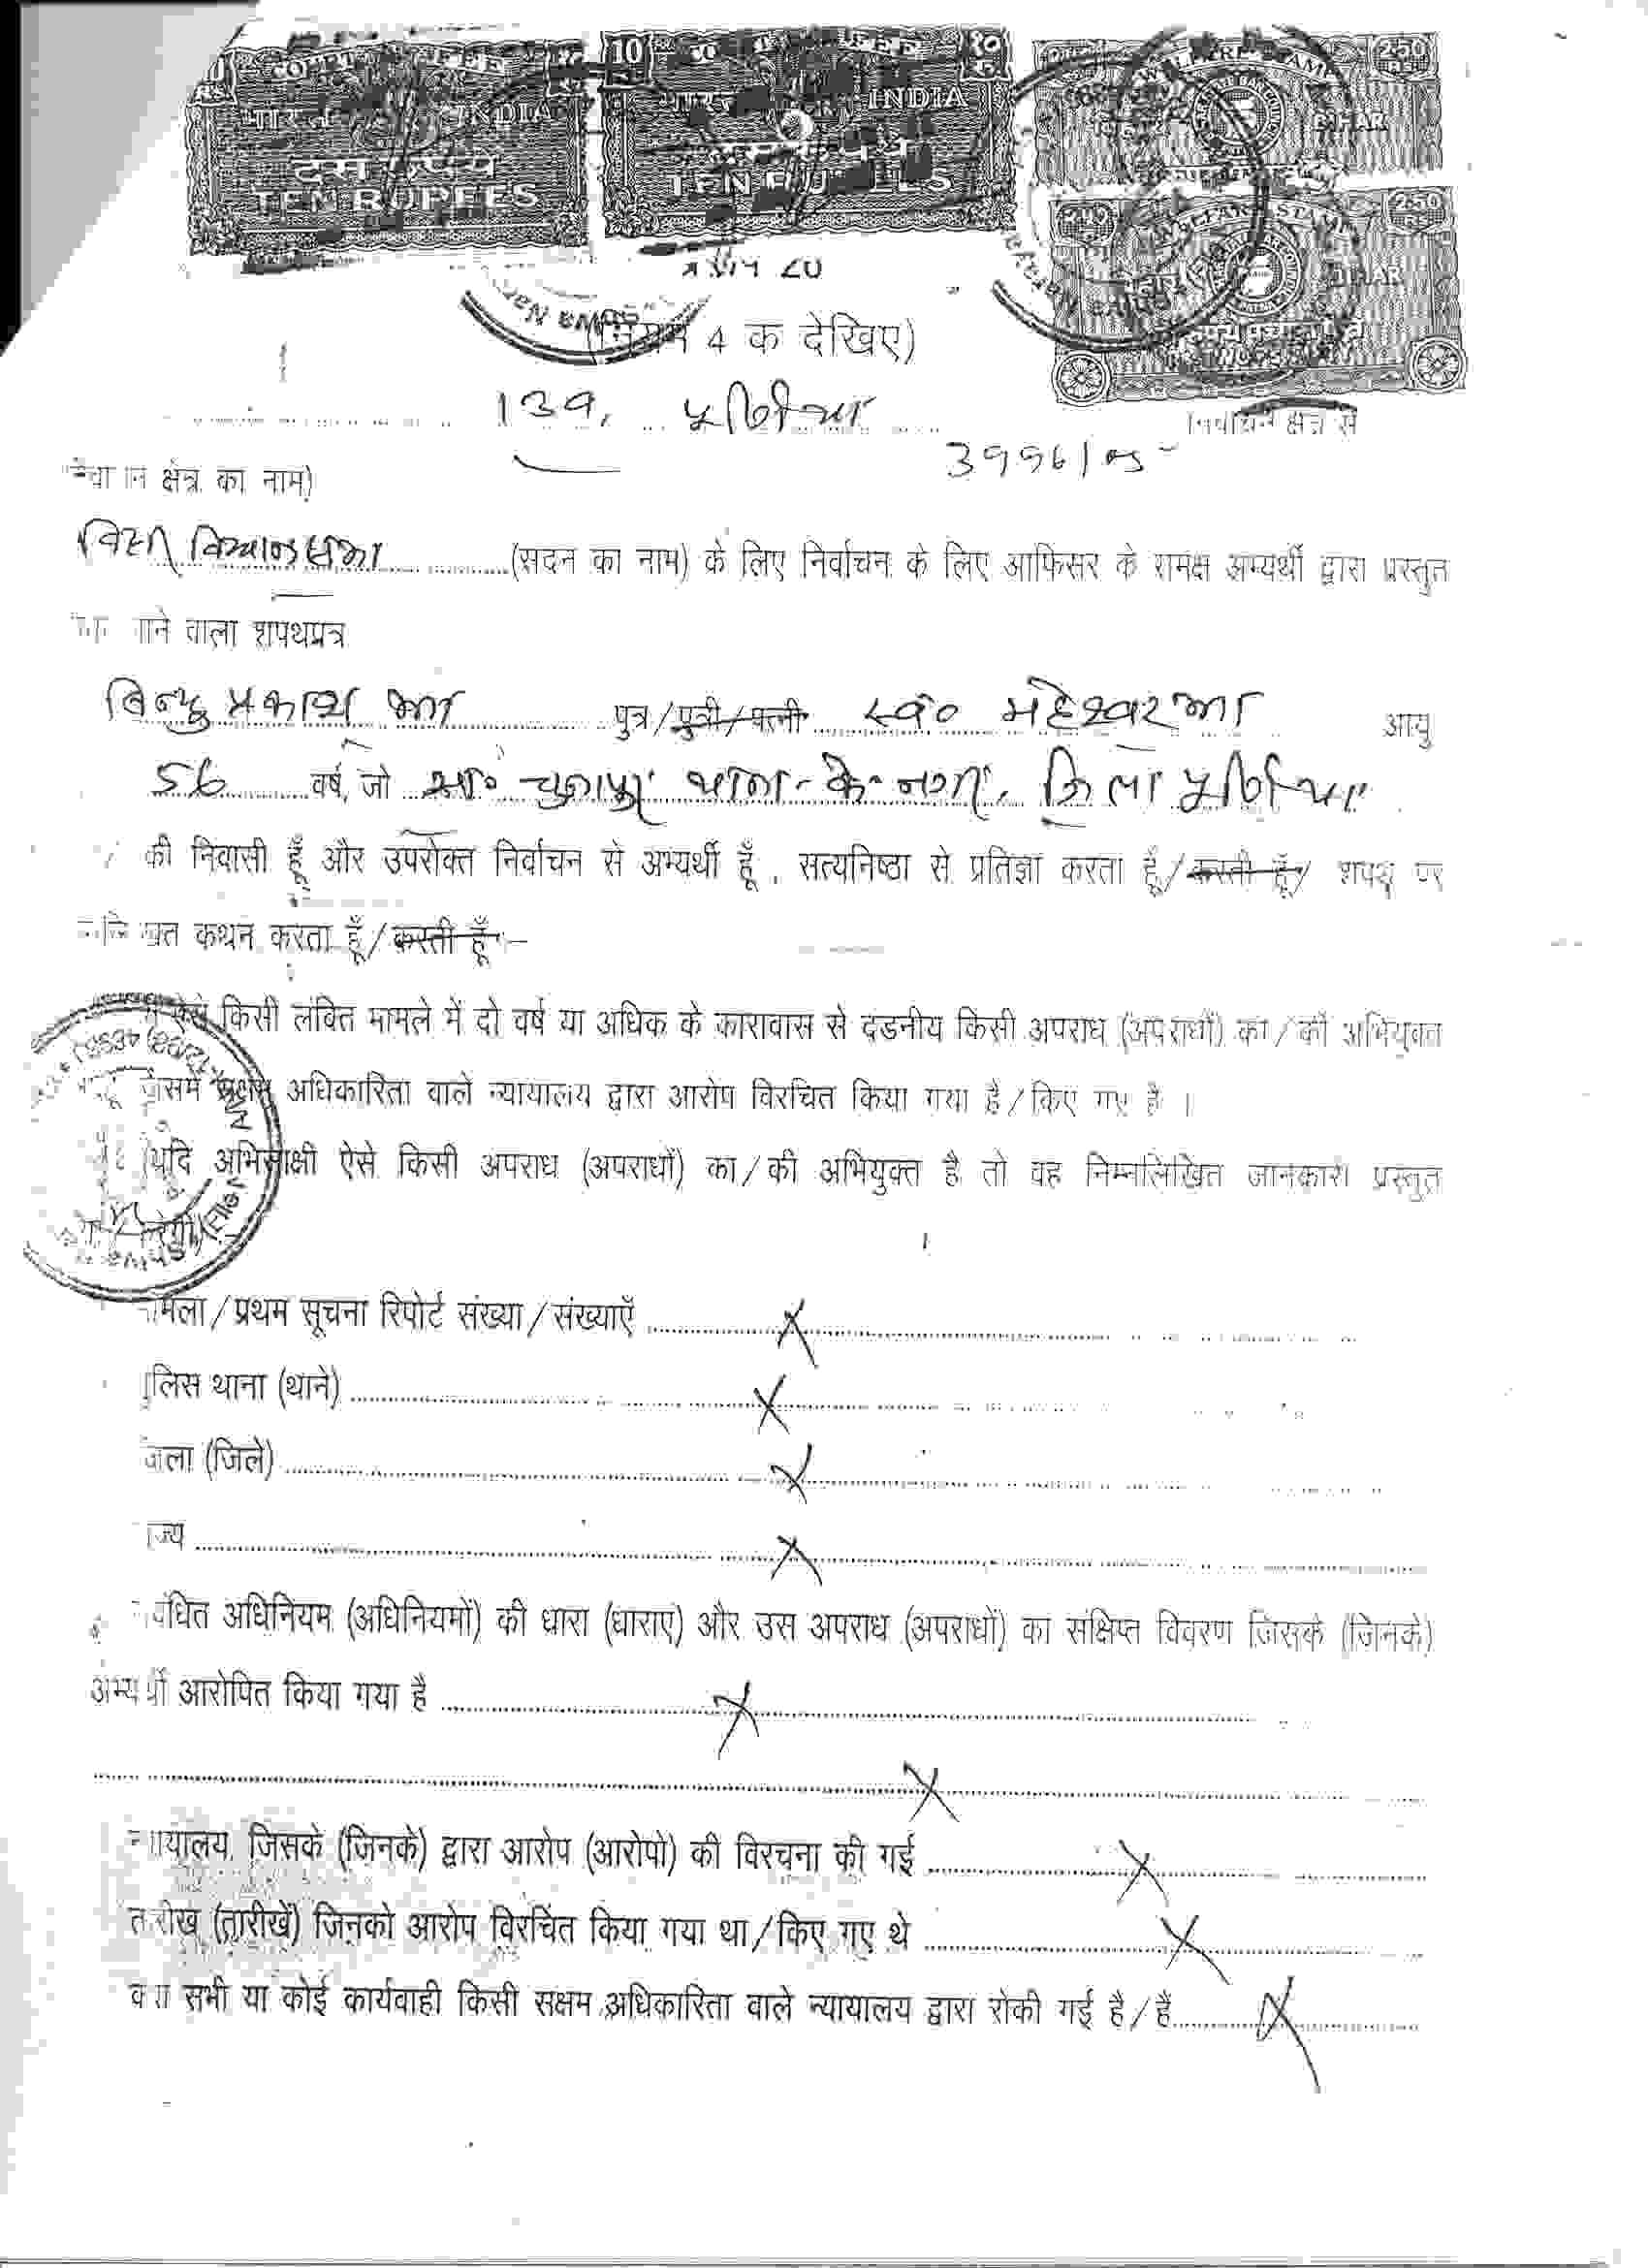 COURT FEE
भारत INDIA
दस रुपये
TEN RUPEES
10
INDIA
TEN RUPEES
WELFARE STAMP
2.50 RS
BIHAR
2.50 RS
WELFARE STAMP
BIHAR
प्रारूप 20
(नियम 4 क देखिए)
139, पूर्णिया निर्वाचन क्षेत्र से
क्षेत्र का नाम)
3996/05
विधानसभा (सदन का नाम) के लिए निर्वाचन के लिए आफिसर के समक्ष अभ्यर्थी द्वारा प्रस्तुत
जाने वाला शपथपत्र
बिन्दु प्रकाश झा पुत्र/पुत्री/पत्नी स्व० महेश्वर झा आयु
56 वर्ष, जो सा० थाना-के० नगर, जिला पूर्णिया
की निवासी हूँ और उपरोक्त निर्वाचन से अभ्यर्थी हूँ, सत्यनिष्ठा से प्रतिज्ञा करता हूँ/करती हूँ/ शपथ पर
कथन करता हूँ/करती हूँ:–
ऐसे किसी लंबित मामले में दो वर्ष या अधिक के कारावास से दंडनीय किसी अपराध (अपराधों) का/की अभियुक्त
जिसमें सक्षम अधिकारिता वाले न्यायालय द्वारा आरोप विरचित किया गया है/किए गए है ।
(यदि अभिसाक्षी ऐसे किसी अपराध (अपराधों) का/की अभियुक्त है तो वह निम्नलिखित जानकारी प्रस्तुत
मामला/प्रथम सूचना रिपोर्ट संख्या/संख्याएँ X
पुलिस थाना (थाने) X
जिला (जिले) X
राज्य X
संबंधित अधिनियम (अधिनियमों) की धारा (धाराए) और उस अपराध (अपराधों) का संक्षिप्त विवरण जिसके (जिनके)
अभ्यर्थी आरोपित किया गया है X
X
न्यायालय, जिसके (जिनके) द्वारा आरोप (आरोपो) की विरचना की गई X
तारीख (तारीखें) जिनको आरोप विरचित किया गया था/किए गए थे X
क्या सभी या कोई कार्यवाही किसी सक्षम अधिकारिता वाले न्यायालय द्वारा रोकी गई है/हैं X